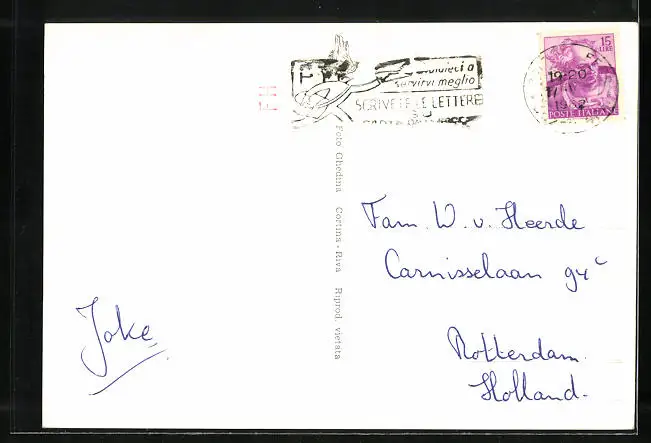 aiutateci a
servirvi meglio
SCRIVETE LE LETTERE
SU
15
LIRE
POSTE ITALIANE
19-20
1962
Foto Ghedina Cortina-Riva Riprod. vietata
Fam. W. v. Heerde
Carnisselaan 94c
Rotterdam.
Holland.
Joke